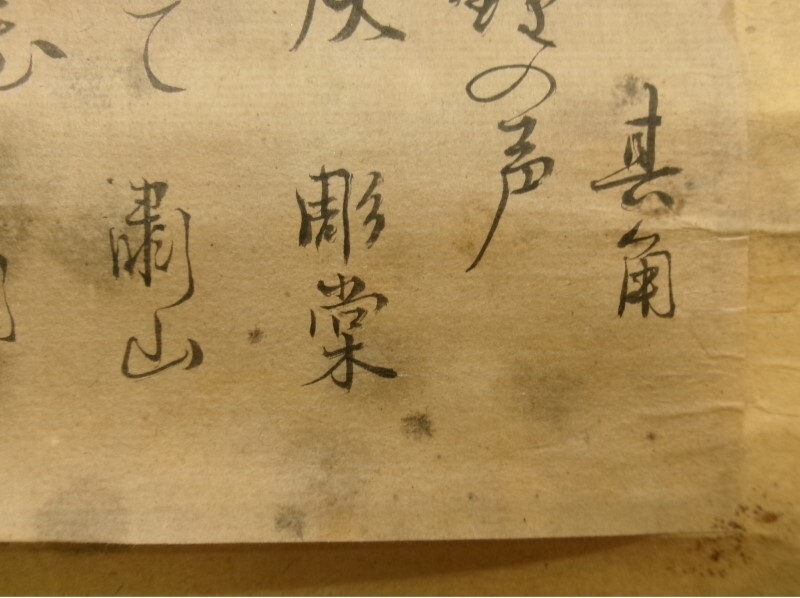 其角
の声
彫棠
て
嘯山